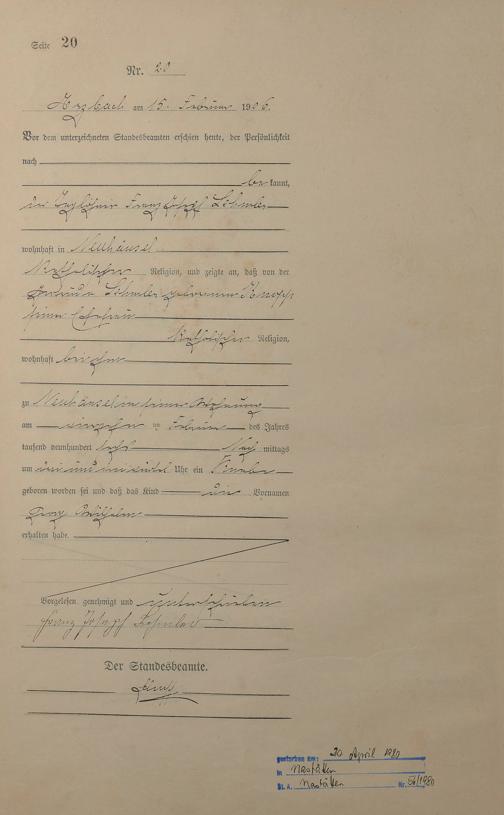 Seite 20
Nr. 20
Arzbach am 15. Februar 1906.
Vor dem unterzeichneten Standesbeamten erschien heute, der Persönlichkeit
nach
bekannt,
der Taglöhner Franz Josef
wohnhaft in Neuhäusel
Katholischer Religion, und zeigte an, daß von der
geborenen
seiner Ehefrau
Katholischer Religion,
wohnhaft bei ihm
zu Neuhäusel in seiner Wohnung
am Februar des Jahres
tausend neunhundert sechs Nachmittags
um Uhr ein Knabe
geboren worden sei und daß das Kind die Vornamen
Wilhelm
erhalten habe.
Vorgelesen, genehmigt und unterschrieben
Franz Joseph
Der Standesbeamte.
gestorben am: 20 April 1980
in Nastätten
St. A. Nastätten Nr. 56/1980